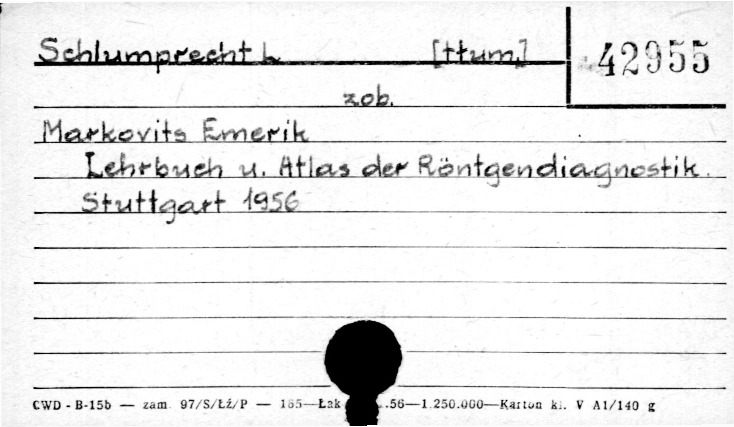 Schlumprecht L. [tłum.] 42955
zob.
Markovits Emerik
Lehrbuch u. Atlas der Röntgendiagnostik.
Stuttgart 1956
CWD - B-15b — zam. 97/S/Łź/P — 165—Łak .56—1.250.000—Karton kl. V A1/140 g